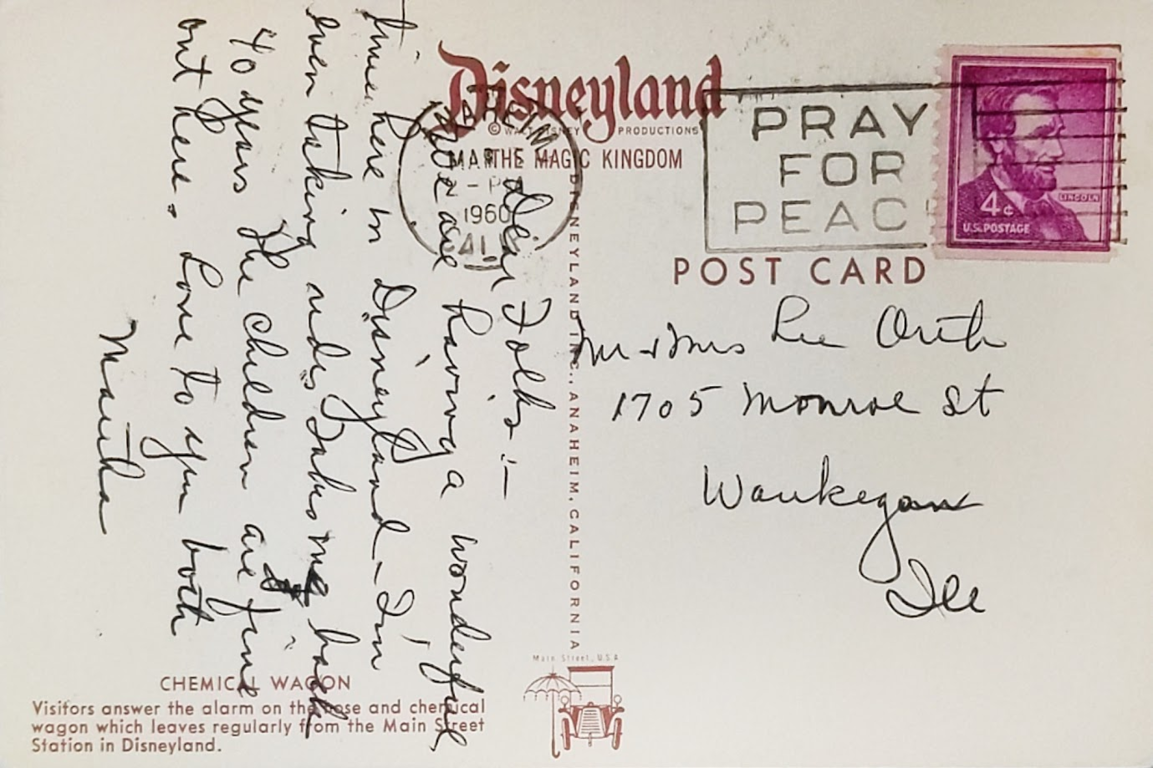 Disneyland
© WALT DISNEY PRODUCTIONS
THE MAGIC KINGDOM
ANAHEIM
MAR
- PM
1960
CALIF
PRAY
FOR
PEAC
4¢
LINCOLN
U.S. POSTAGE
POST CARD
DISNEYLAND INC., ANAHEIM, CALIFORNIA
Dear Folks:—
We are having a wonderful
time here in Disneyland - I'm
even taking rides Takes me back
40 years The children are fine
out here. Love to you both
Martha
Mr + Mrs Lee Orth
1705 Monroe St
Waukegan
Ill
Main Street, U.S.A
CHEMICAL WAGON
Visitors answer the alarm on the hose and chemical
wagon which leaves regularly from the Main Street
Station in Disneyland.